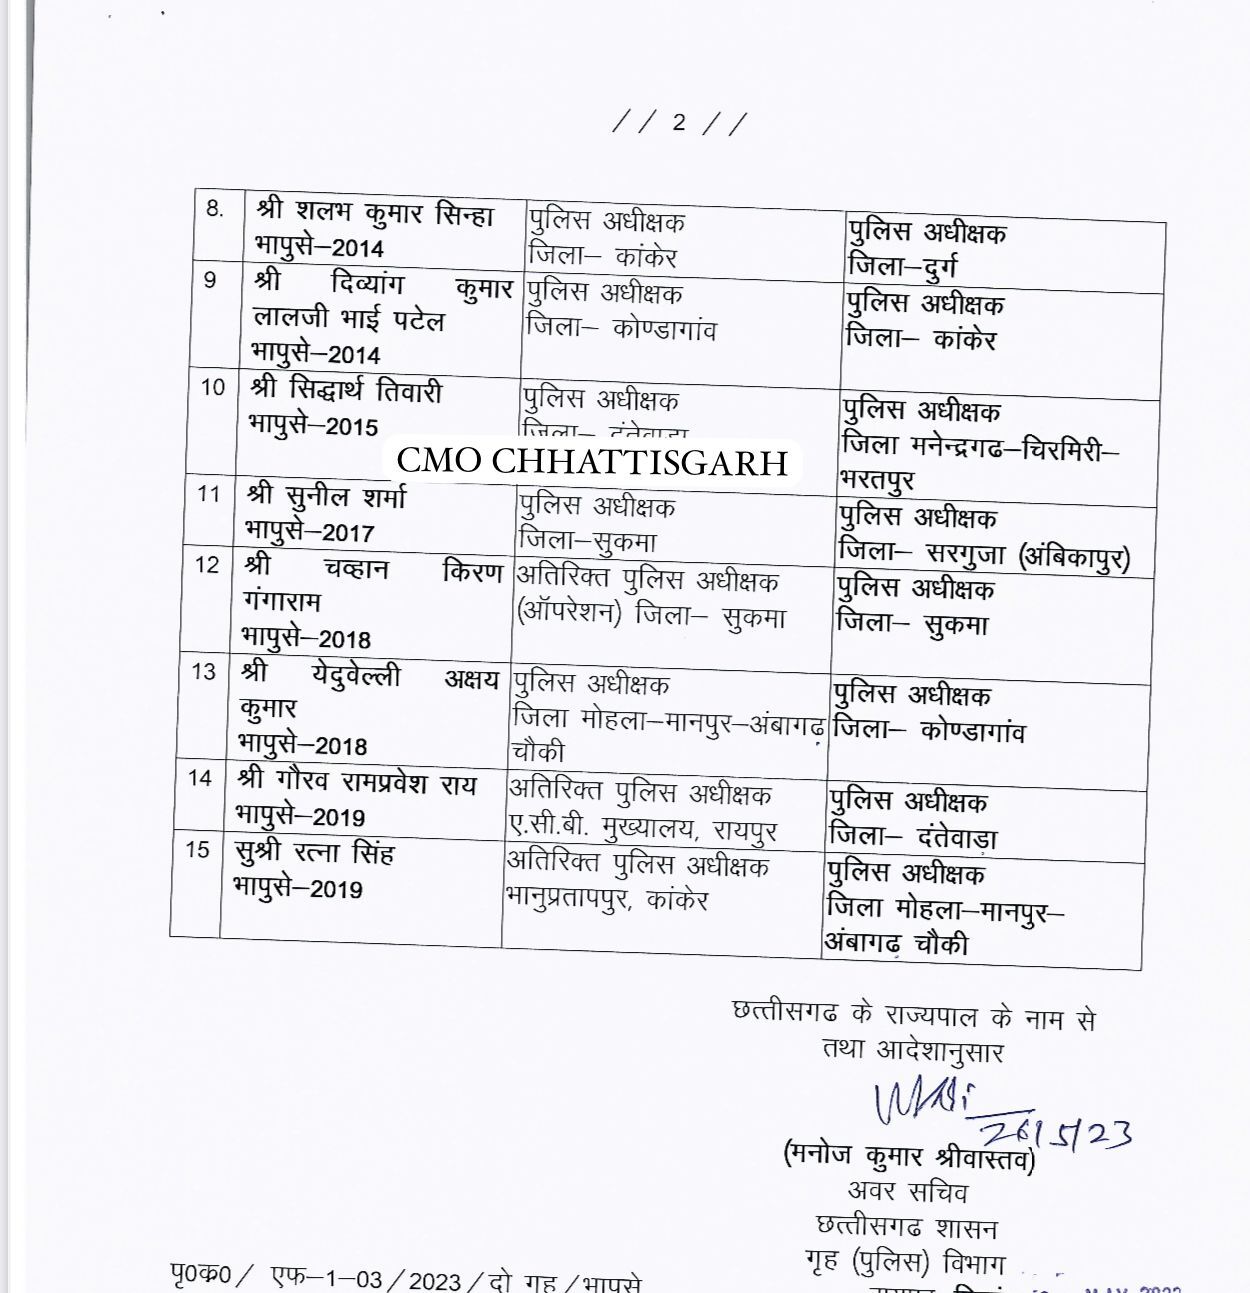 // 2 //
8.
श्री शलभ कुमार सिन्हा
भापुसे–2014
पुलिस अधीक्षक
जिला– कांकेर
पुलिस अधीक्षक
जिला–दुर्ग
9
श्री दिव्यांग कुमार
लालजी भाई पटेल
भापुसे–2014
पुलिस अधीक्षक
जिला– कोण्डागांव
पुलिस अधीक्षक
जिला– कांकेर
10
श्री सिद्धार्थ तिवारी
भापुसे–2015
पुलिस अधीक्षक
जिला– दंतेवाडा
पुलिस अधीक्षक
जिला मनेन्द्रगढ–चिरमिरी–
भरतपुर
CMO CHHATTISGARH
11
श्री सुनील शर्मा
भापुसे–2017
पुलिस अधीक्षक
जिला–सुकमा
पुलिस अधीक्षक
जिला– सरगुजा (अंबिकापुर)
12
श्री चव्हान किरण
गंगाराम
भापुसे–2018
अतिरिक्त पुलिस अधीक्षक
(ऑपरेशन) जिला– सुकमा
पुलिस अधीक्षक
जिला– सुकमा
13
श्री येदुवेल्ली अक्षय
कुमार
भापुसे–2018
पुलिस अधीक्षक
जिला मोहला–मानपुर–अंबागढ़
चौकी
पुलिस अधीक्षक
जिला– कोण्डागांव
14
श्री गौरव रामप्रवेश राय
भापुसे–2019
अतिरिक्त पुलिस अधीक्षक
ए.सी.बी. मुख्यालय, रायपुर
पुलिस अधीक्षक
जिला– दंतेवाडा
15
सुश्री रत्ना सिंह
भापुसे–2019
अतिरिक्त पुलिस अधीक्षक
भानुप्रतापपुर, कांकेर
पुलिस अधीक्षक
जिला मोहला–मानपुर–
अंबागढ़ चौकी
छत्तीसगढ के राज्यपाल के नाम से
तथा आदेशानुसार
26/5/23
(मनोज कुमार श्रीवास्तव)
अवर सचिव
छत्तीसगढ शासन
गृह (पुलिस) विभाग
पृ0क0/ एफ–1–03/2023/दो गृह/भापुसे